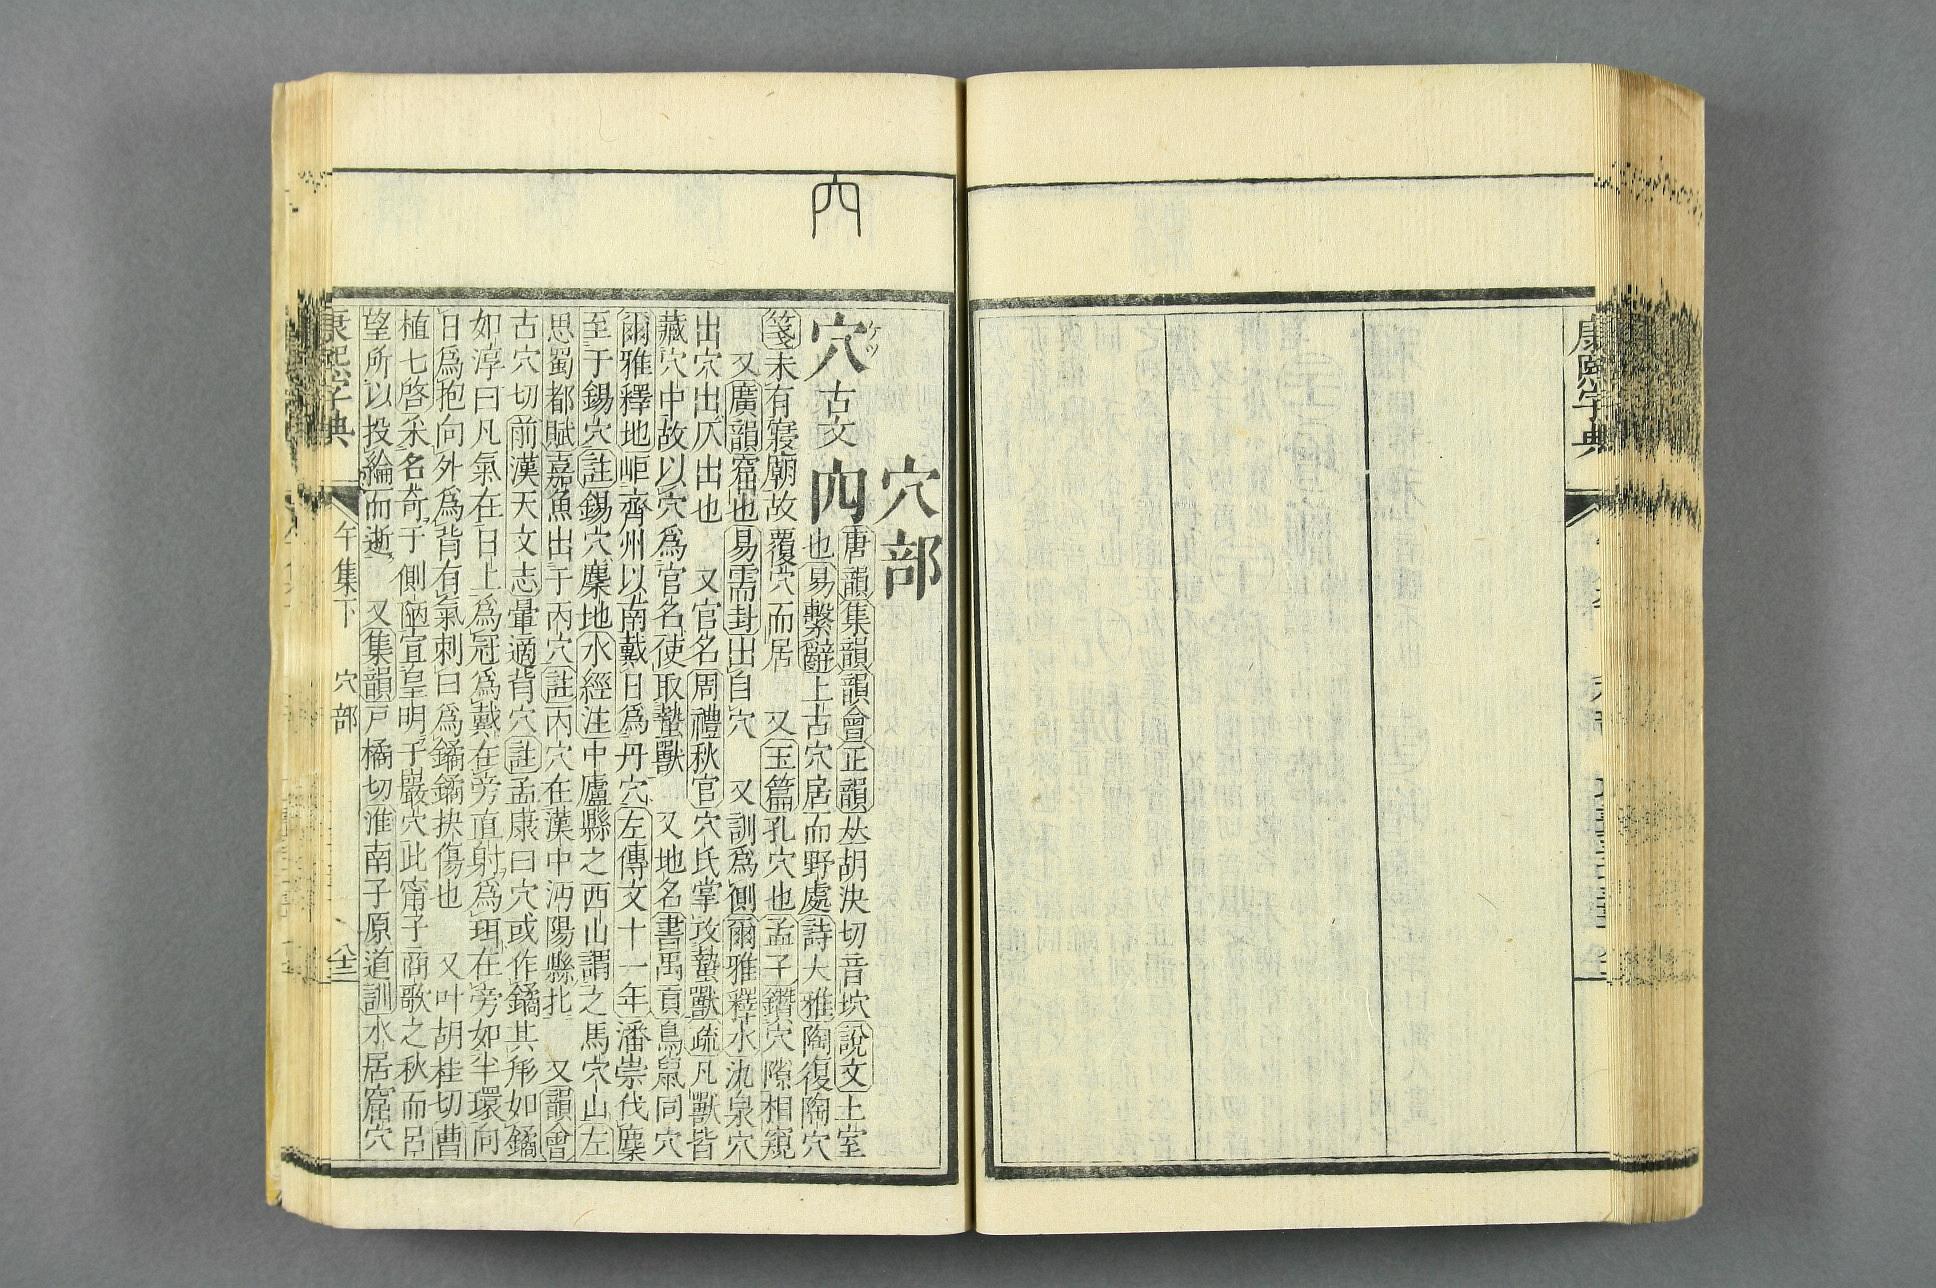 康熙字典
穴部
穴 ケツ 古文 內
唐韻集韻韻會正韻𠀤胡決切音坹說文土室
也易繫辭上古穴居而野處詩大雅陶復陶穴
箋未有寢廟故覆穴而居 又玉篇孔穴也孟子鑽穴隙相窺
又廣韻窟也易需卦出自穴 又訓爲側爾雅釋水氿泉穴
出穴出仄出也 又官名周禮秋官穴氏掌攻蟄獸疏凡獸皆
藏穴中故以穴爲官名使取蟄獸 又地名書禹貢鳥鼠同穴
爾雅釋地岠齊州以南戴日爲丹穴左傳文十一年潘崇伐麇
至于錫穴註錫穴麇地水經注中廬縣之西山謂之馬穴山左
思蜀都賦嘉魚出于丙穴註丙穴在漢中沔陽縣北 又韻會
古穴切前漢天文志暈適背穴註孟康曰穴或作鐍其形如鐍
如淳曰凡氣在日上爲冠爲戴在旁直射爲珥在旁如半環向
日爲抱向外爲背有氣刺日爲鐍鐍抉傷也 又叶胡桂切曹
植七啓采名奇于側陋宣皇明于巖穴此甯子商歌之秋而呂
望所以投綸而逝 又集韻戶橘切淮南子原道訓水居窟穴
康熙字典 午集下 穴部